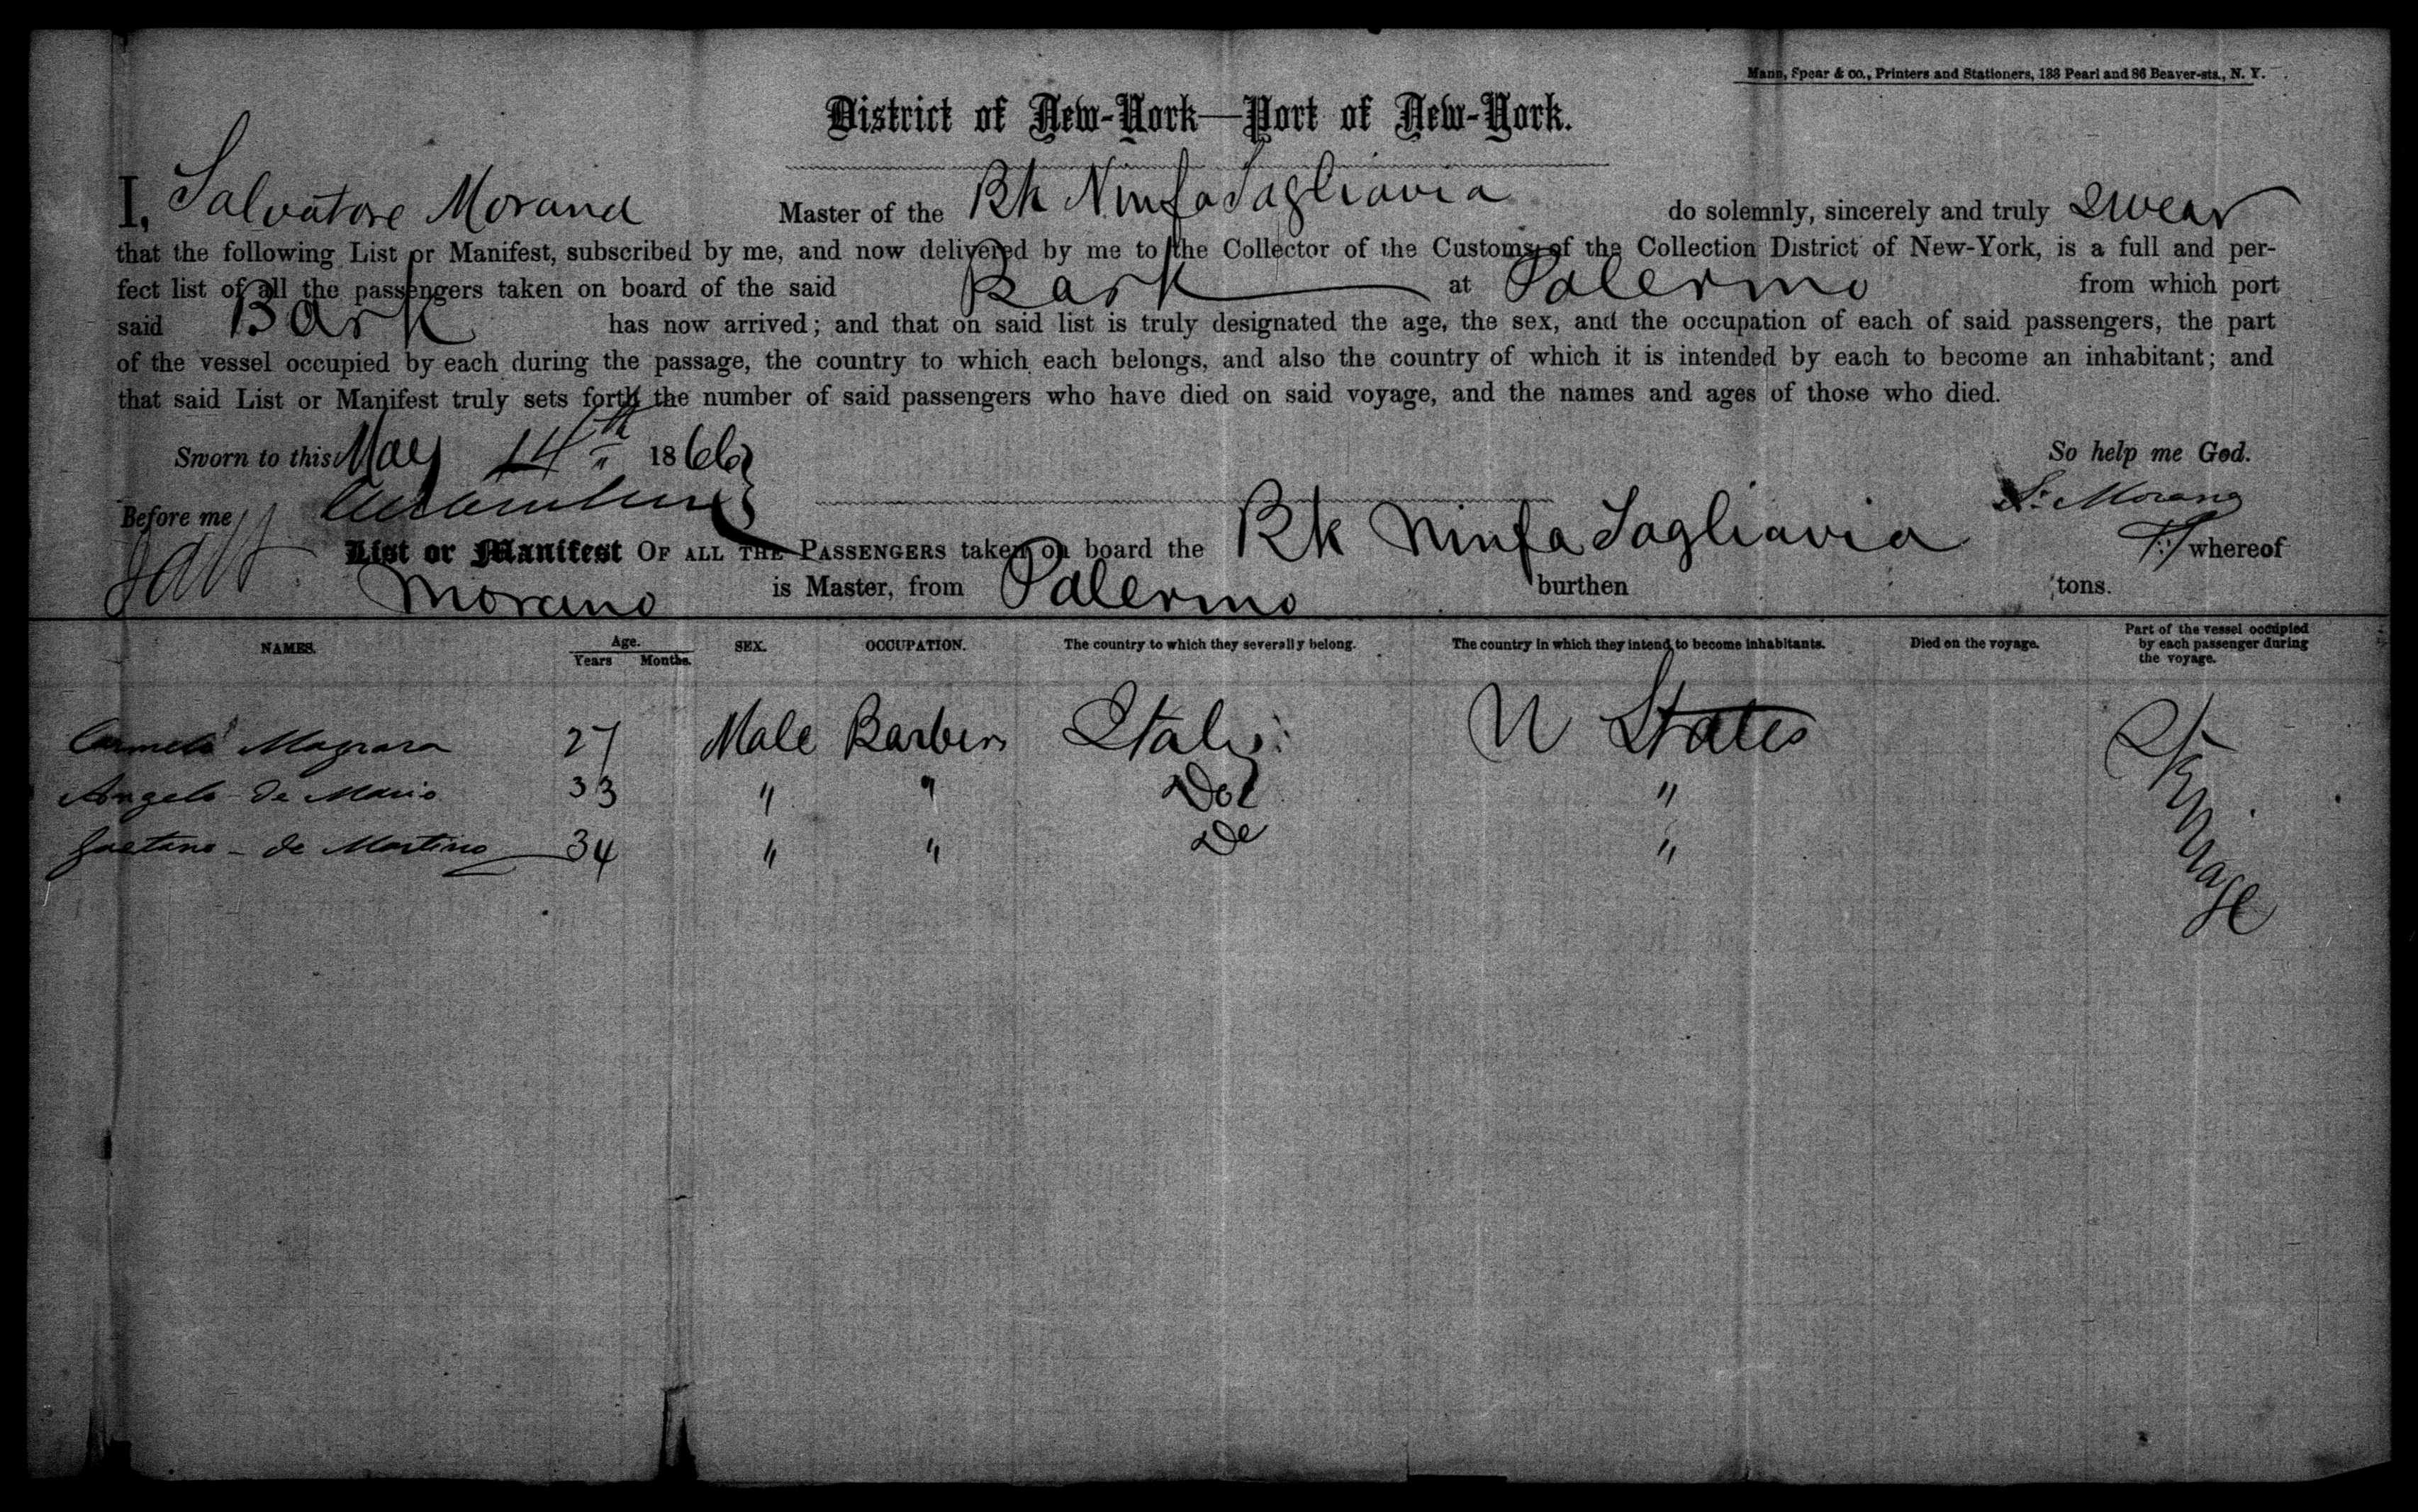 Mann, Spear & co., Printers and Stationers, 133 Pearl and 86 Beaver-sts., N. Y.
District of New-York—Port of New-York.
I, Salvatore Morana Master of the Bk Ninfa Tagliavia do solemnly, sincerely and truly swear
that the following List or Manifest, subscribed by me, and now delivered by me to the Collector of the Customs of the Collection District of New-York, is a full and per-
fect list of all the passengers taken on board of the said Bark at Palermo from which port
said Bark has now arrived; and that on said list is truly designated the age, the sex, and the occupation of each of said passengers, the part
of the vessel occupied by each during the passage, the country to which each belongs, and also the country of which it is intended by each to become an inhabitant; and
that said List or Manifest truly sets forth the number of said passengers who have died on said voyage, and the names and ages of those who died.
Sworn to this May 14th 1866 So help me God.
Before me S. Morano
List or Manifest OF ALL THE PASSENGERS taken on board the Bk Ninfa Tagliavia whereof
Morano is Master, from Palermo burthen tons.
NAMES. Age. Years Months. SEX. OCCUPATION. The country to which they severally belong. The country in which they intend to become inhabitants. Died on the voyage. Part of the vessel occupied by each passenger during the voyage.
Carmelo Magrara 27 Male Barbers Italy U States Steerage
Angelo de Mario 33 " " Do "
Gaetano - de Martino 34 " " Do "